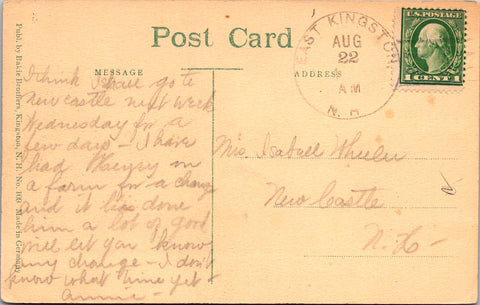 Post Card
MESSAGE
ADDRESS
Publ. by Eakie Brothers, Kingston, N. H. No. 109 Made in Germany
EAST KINGSTON
AUG
22
AM
N. H.
U.S. POSTAGE
1 CENT 1
I think I shall go to
Newcastle next week
Wednesday for a
few days – I have
had Henry on
a farm for a change
and it has done
him a lot of good
will let you know
my change – I don't
know what time yet –
Annie –
Mrs. Isabell
New Castle
N. H –